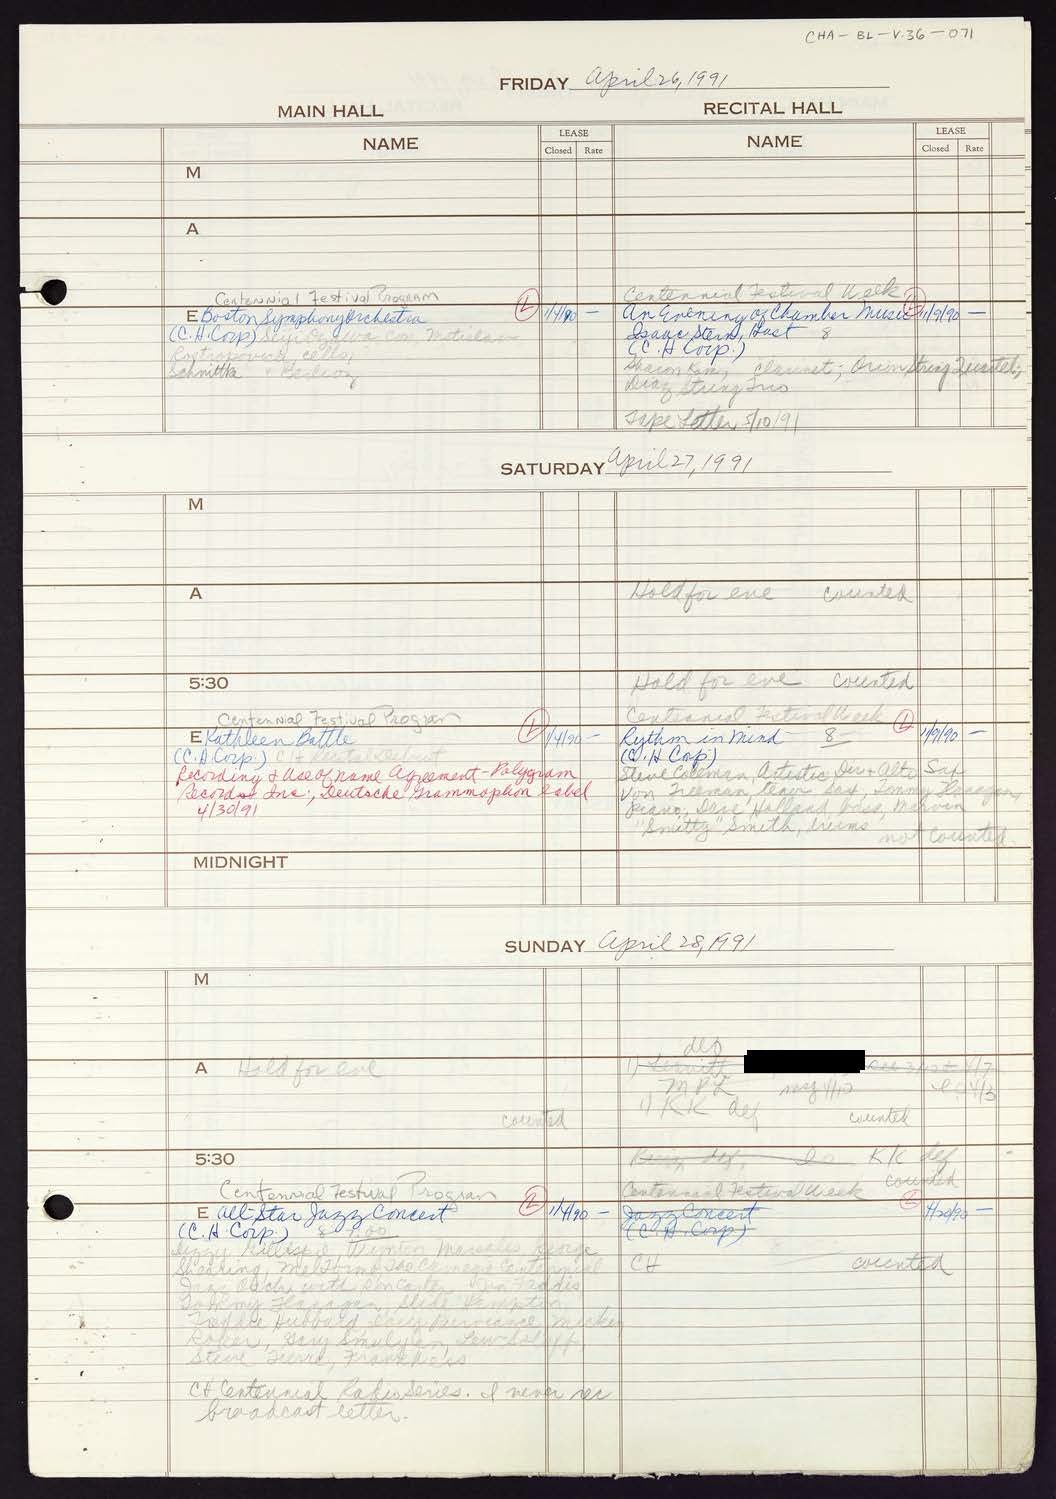 CHA-BL-V.36-071
FRIDAY April 26, 1991
MAIN HALL
RECITAL HALL
NAME
LEASE
Closed Rate
NAME
LEASE
Closed Rate
M
A
Centennial Festival Program
E Boston Symphony Orchestra L 1/4/90 —
(C.H. Corp) Seiji Ozawa con, Mstislav
Rostropovich cello,
Schnittke + Berlioz
Centennial Festival Week
An Evening of Chamber Music L 1/9/90 —
Isaac Stern, Host 8
(C.H. Corp.)
Sharon Kam, clarinet; Orion String Quartet;
Diaz String Trio
Tape Letter 5/10/91
SATURDAY April 27, 1991
M
A
Hold for eve counted
5:30
Hold for eve counted
Centennial Festival Program
E Kathleen Battle L 1/4/90 —
(C.H Corp.) CH Recital Debut
Recording & Use of name Agreement - Polygram
Records Inc., Deutsche Grammophon label
4/30/91
Centennial Festival Week
Rythm in Mind 8 L 1/9/90 —
(C.H Corp.)
Steve Coleman, Artistic Dir + Alto Sax
Von Freeman, tenor sax, Tommy Flanagan,
piano, Dave Holland, bass, Marvin
"Smitty" Smith, drums
not counted.
MIDNIGHT
SUNDAY April 28, 1991
M
A Hold for eve
counted
def
1) Leavitt 4/7
MPL 4/10 4/3
1) KK def counted
5:30
KK def
counted
Centennial Festival Program
E All-Star Jazz Concert L 1/4/90 —
(C.H. Corp.) 7:00
Dizzy Gillespie, Wynton Marsalis, George
Shearing, Mel Torme, The Carnegie Centennial
Jazz Orch, with Ron Carter, Jon Faddis,
Tommy Flanagan, Slide Hampton,
Freddie Hubbard, Carl Purviance, Mickey
Roker, Gary Smulyan, Lew Soloff,
Steve Turre, Frank Wess
CH Centennial Radio Series. I never rec
broadcast letter.
Centennial Festival Week
Jazz Concert L 1/20/90 —
(C.H. Corp)
CH counted